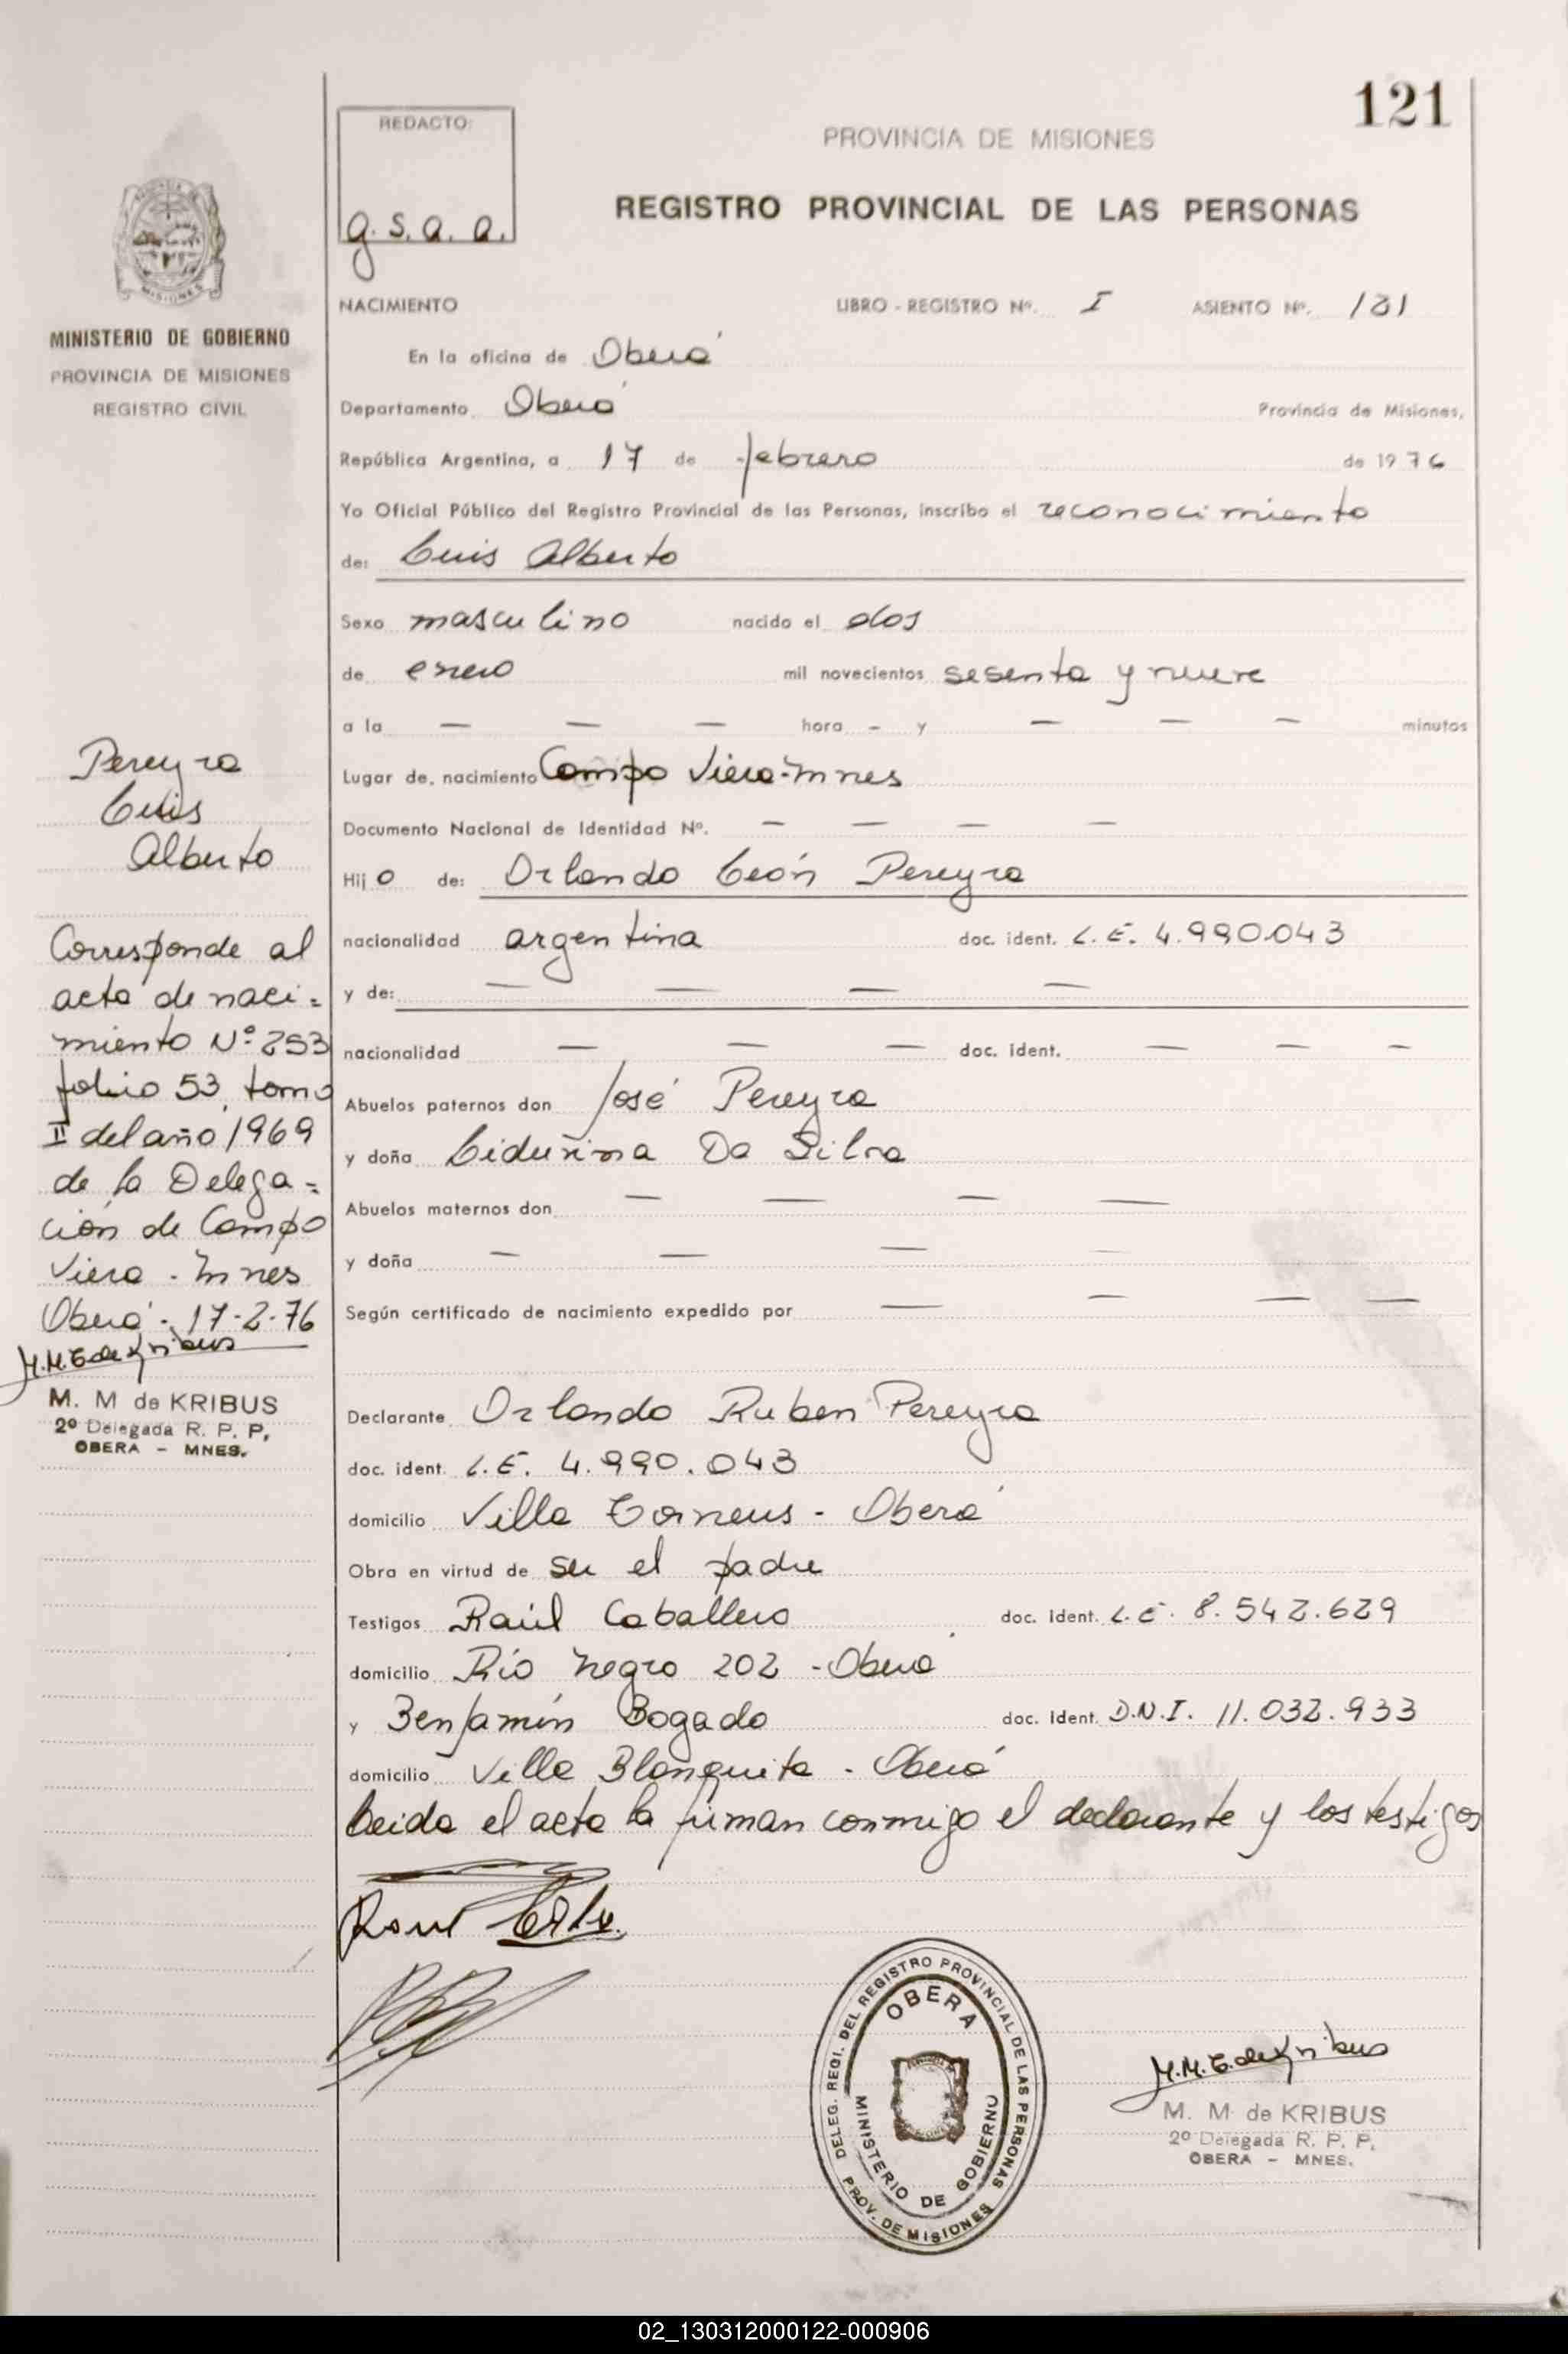 121
REDACTO:
g. s. a. a.
PROVINCIA DE MISIONES
REGISTRO PROVINCIAL DE LAS PERSONAS
NACIMIENTO LIBRO - REGISTRO Nº. I ASIENTO Nº. 121
En la oficina de Oberá
Departamento Oberá Provincia de Misiones,
República Argentina, a 17 de febrero de 1976
Yo Oficial Público del Registro Provincial de las Personas, inscribo el reconocimiento
de: Luis Alberto
Sexo masculino nacido el dos
de enero mil novecientos sesenta y nueve
a la — — — hora - y — — — minutos
Lugar de nacimiento Campo Viera-Mnes
Documento Nacional de Identidad Nº. — — — —
Hijo de: Orlando León Pereyra
nacionalidad argentina doc. ident. L.E. 4.990.043
y de: — — — —
nacionalidad — — — doc. ident. — — —
Abuelos paternos don José Pereyra
y doña Da Silva
Abuelos maternos don — — — —
y doña — — — —
Según certificado de nacimiento expedido por — — — —
Declarante Orlando Ruben Pereyra
doc. ident. L.E. 4.990.043
domicilio Villa - Oberá
Obra en virtud de ser el padre
Testigos Raúl Caballero doc. ident. L.E. 8.542.629
domicilio Río Negro 202 - Oberá
y Benjamín Bogado doc. ident. D.N.I. 11.032.933
domicilio Villa Blanquita - Oberá
Leida el acta la firman conmigo el declarante y los testigos
Raul
DELEG. REGI. DEL REGISTRO PROVINCIAL DE LAS PERSONAS
PROV. DE MISIONES
OBERA
MINISTERIO DE GOBIERNO
M. M de KRIBUS
2º Delegada R. P. P.
OBERA - MNES.
MISIONES
MINISTERIO DE GOBIERNO
PROVINCIA DE MISIONES
REGISTRO CIVIL
Pereyra
Luis
Alberto
Corresponde al
acta de naci=
miento Nº 253
folio 53, tomo
II del año 1969
de la Delega=
ción de Campo
Viera - Mnes
Oberá - 17-2-76
M. M de KRIBUS
2º Delegada R. P. P.
OBERA - MNES.
02_130312000122-000906